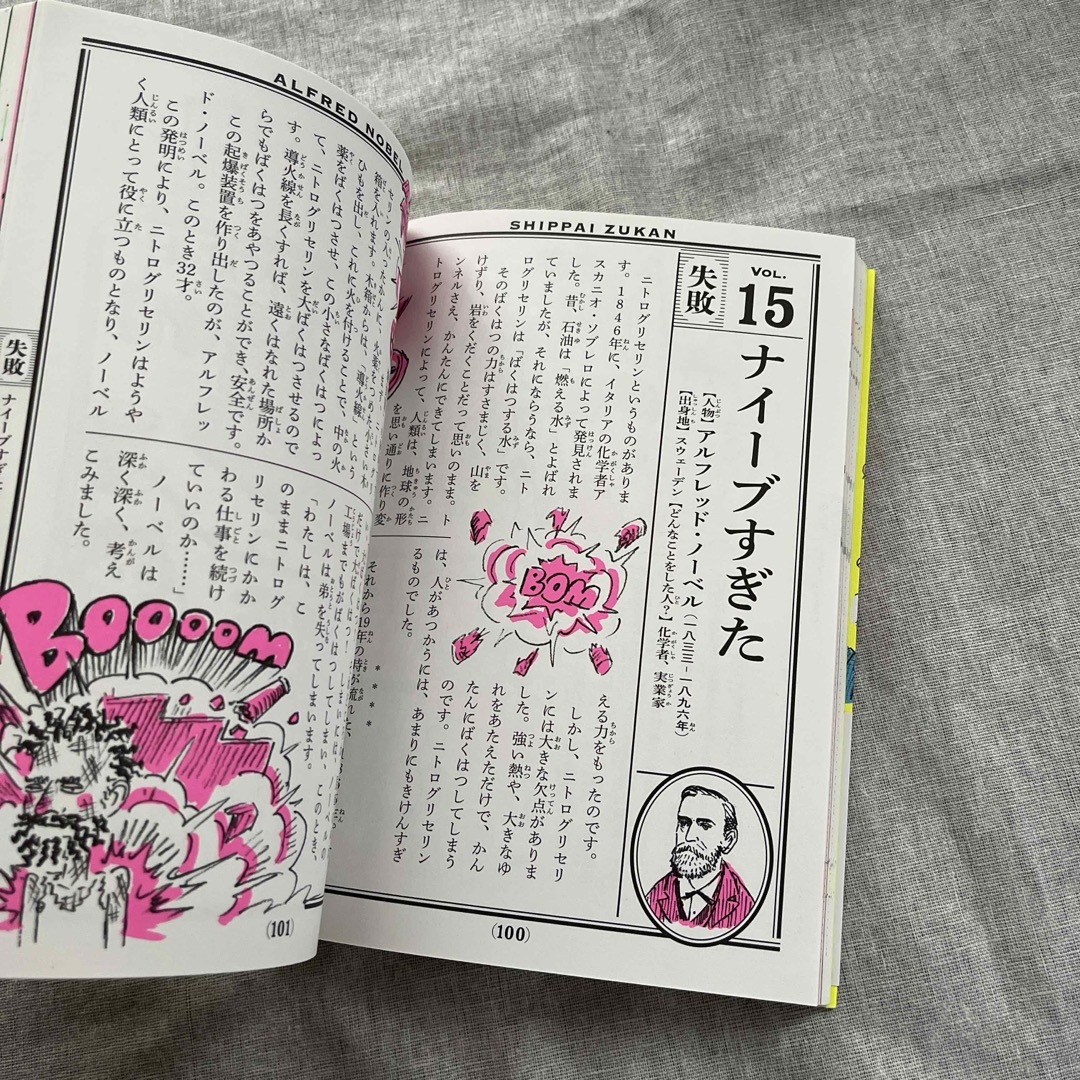 SHIPPAI ZUKAN
VOL.
15
失敗
ナイーブすぎた
【人物】アルフレッド・ノーベル(一八三三―一八九六年)
【出身地】スウェーデン【どんなことをした人?】化学者、実業家
ニトログリセリンというものがありま
す。1846年に、イタリアの化学者ア
スカニオ・ソブレロによって発見されま
した。昔、石油は「燃える水」とよばれ
ていましたが、それにならうなら、ニト
ログリセリンは「ばくはつする水」です。
そのばくはつの力はすさまじく、山を
けずり、岩をくだくことだって思いのまま。ト
ンネルさえ、かんたんにできてしまいます。ニ
トログリセリンによって、人類は、地球の形
を思い通りに作り変
える力をもったのです。
しかし、ニトログリセリ
ンには大きな欠点がありま
した。強い熱や、大きなゆ
れをあたえただけで、かん
たんにばくはつしてしまう
のです。ニトログリセリン
は、人があつかうには、あまりにもきけんすぎ
るものでした。
BOM
****
それから19年の時が流れた、
(100)
ALFRED NOBEL
セリンの入ったかんと、火薬をつめた小さい木
箱を入れます。木箱からは、「導火線」という
ひもを出し、これに火を付けることで、中の火
薬をばくはつさせ、この小さなばくはつによっ
て、ニトログリセリンを大ばくはつさせるので
す。導火線を長くすれば、遠くはなれた場所か
らでもばくはつをあやつることができ、安全です。
この起爆装置を作り出したのが、アルフレッ
ド・ノーベル。このとき32才。
この発明により、ニトログリセリンはようや
く人類にとって役に立つものとなり、ノーベル
工場までもがばくはつしてしまい、このとき、
ノーベルは弟を失ってしまいます。
「わたしは、こ
のままニトログ
リセリンにかか
わる仕事を続け
ていいのか……」
ノーベルは
深く深く、考え
こみました。
BOOOOM
失敗
ナイーブすぎた
(101)